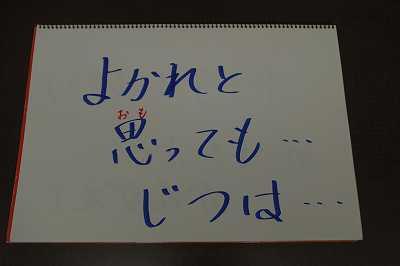 よかれと
思っても…
じつは…